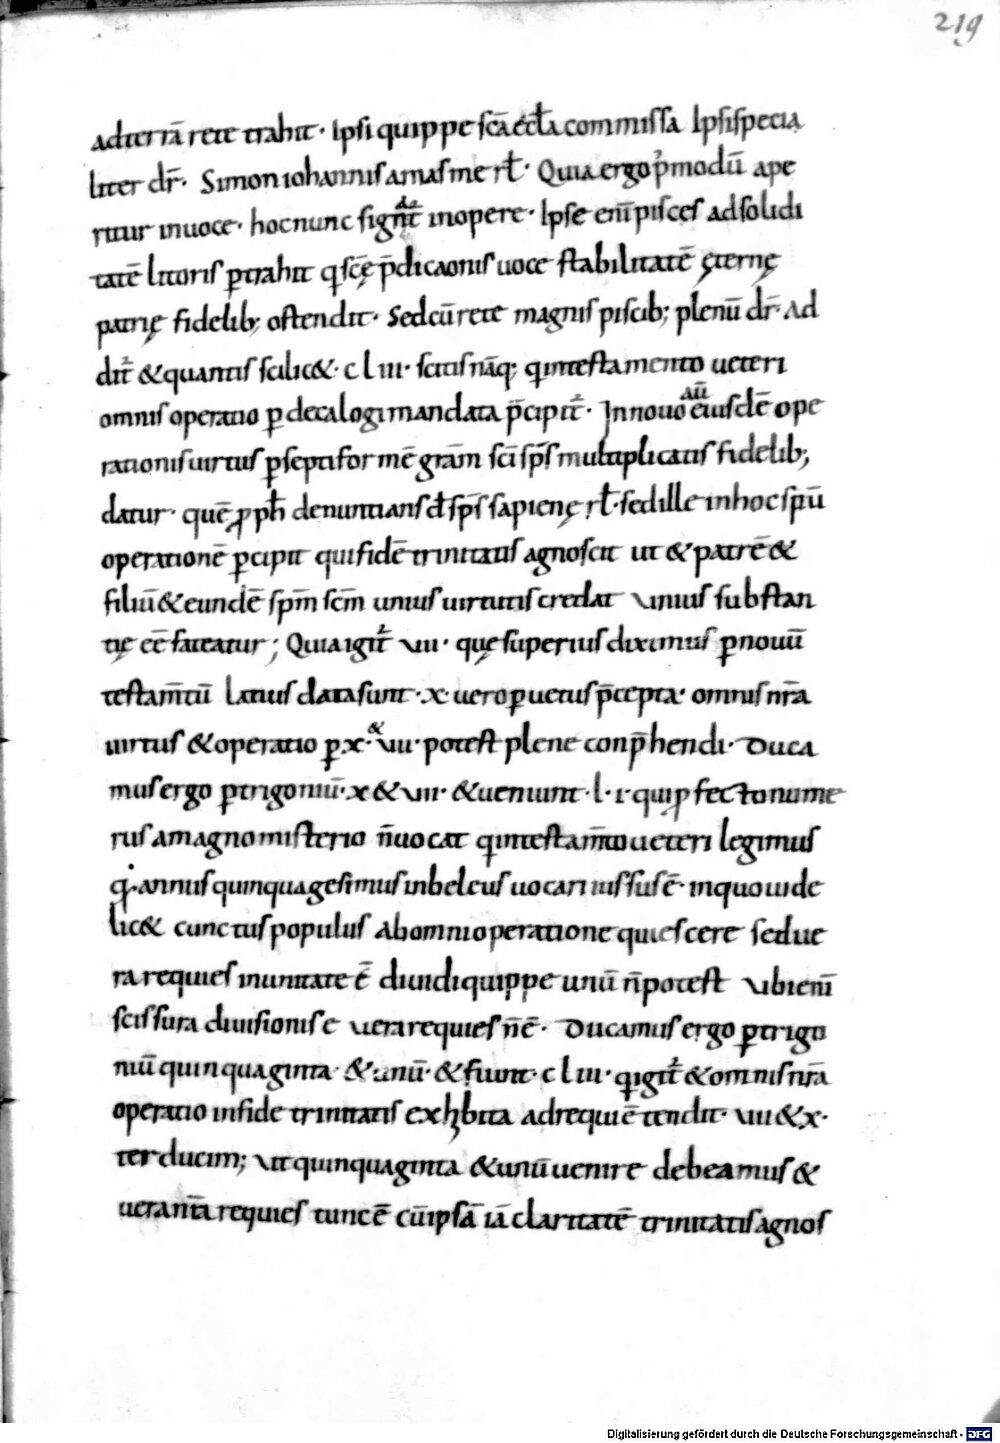 219
adterrā rete trahit· Ipsi quippe scā eccła commissa Ipsi specia
liter dr̄· Simon iohannis amas me rł· Quia ergo p̉modū ape
ritur inuoce· hoc nunc sign̄t de inopere· Ipse eni̅ pisces adsolidi
tatē litoris ꝑtrahit q̄ scę p̄dicaonis uoce stabilitatē ęternę
patrię fidelib; ostendit· Sed cū rete magnis piscib; plenū dr̄· Ad
dit̉ & quantis scilic&· c l iii· scitis nāq; q̄ intestamento ueteri
omnis operatio ꝑ decalogi mandata p̄cipit̉· Innouo aū eiusdē ope
rationis uirtus ꝑ septiformē grām sci sp̄s multiplicatis fidelib;
datur· quē ꝓph̄ denuntians dł sp̄s sapienę rł· sed ille inhoc spū
operationē ꝑcipit qui fidē trinitatis agnoscit ut & patrē &
filiū & eundē spm̄ scm̄ unius uirtutis credat unius substan
tię eē fateatur; Quia igit̉ uii· quę superius diximus ꝑ nouū
testam̄tū latius data sunt ·x· uero ꝑ uetus p̄cepta· omnis nr̄a
uirtus & operatio ꝑ x· & uii· potest plene conp̄hendi· Duca
mus ergo ꝑ trigoniū· x & uii· & ueniunt ·l·i· qui ꝓfecto nume
rus amagno misterio n̄ uocat q̄ intestam̄to ueteri legimus
q̄· annus quinquagesimus inbeleus uocari iussus ē· inquo uide
lic& cunctus populus abomni operatione quiescere sed ue
ra requies inunitate ē diuidi quippe unū n̄ potest ubi eni̅
scissura diuisionis e uera requies n̄ ē· Ducamus ergo ꝑ trigo
niū quinquaginta· & unū· & fiunt· c l iii· q̄ igit̉ & omnis nr̄a
operatio infide trinitatis exhibita adrequiē tendit· uii & x·
ter ducim; ut quinquaginta & unū uenire debeamus &
uera nr̄a requies tunc ē cū ipsā iā claritatē trinitatis agnos
Digitalisierung gefördert durch die Deutsche Forschungsgemeinschaft - DFG